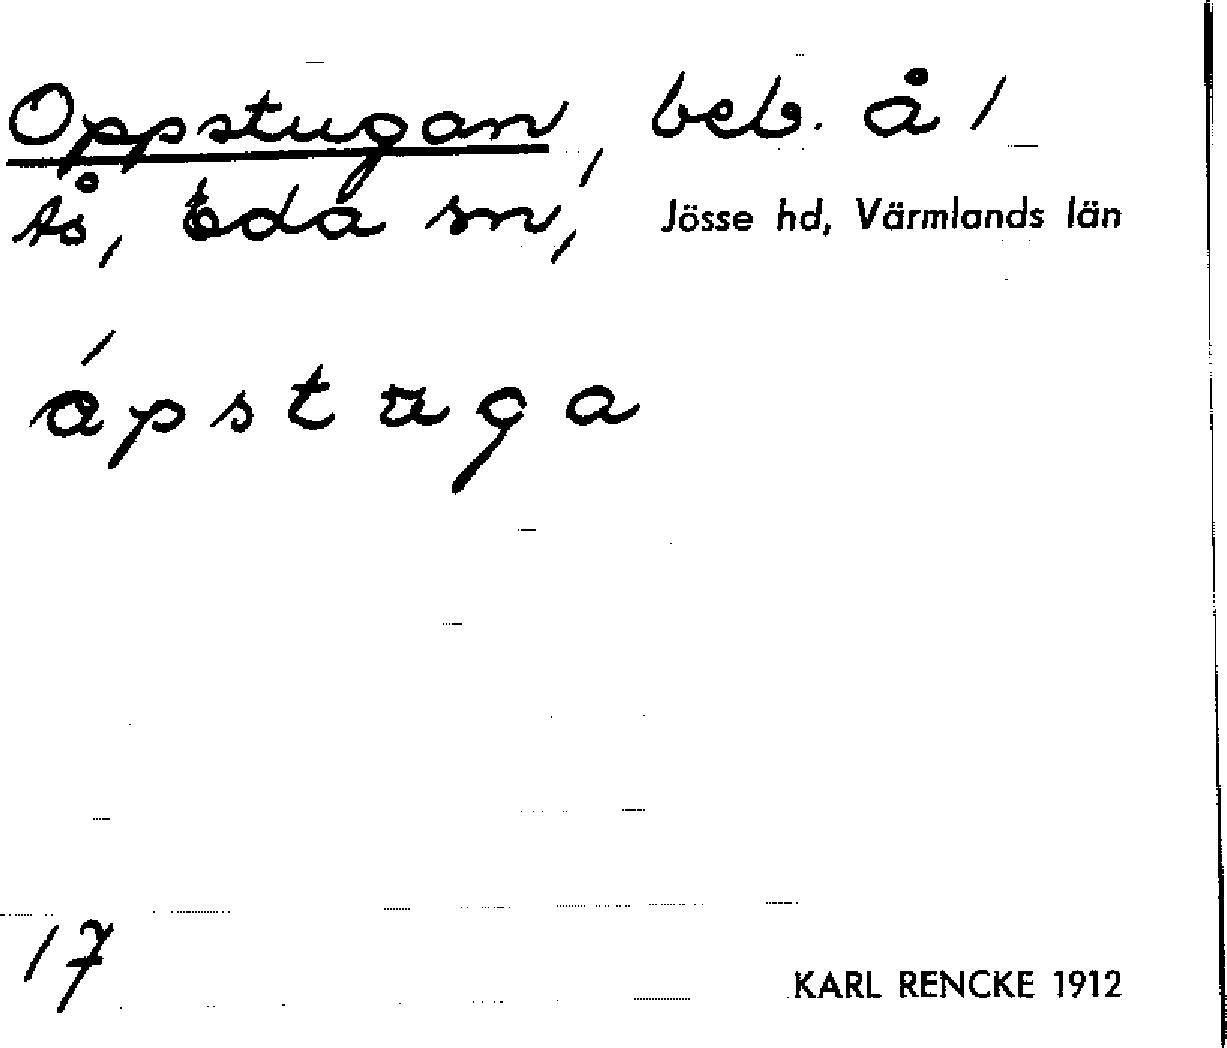 Oppstugan, beb. å 1
Ås, Eda sn, Jösse hd, Värmlands län
ápstuga
17
KARL RENCKE 1912